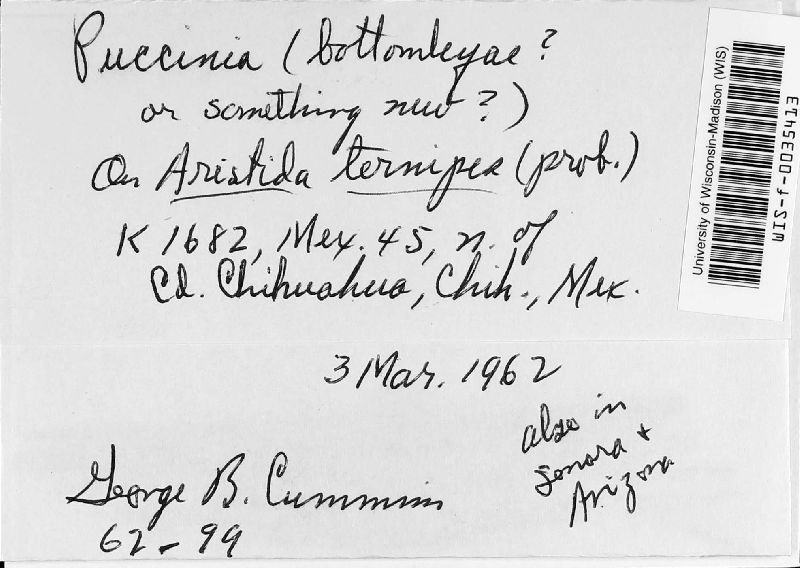 Puccinia (bottomleyae ?
or something new ?)
On Aristida ternipes (prob.)
K 1682, Mex. 45, n. of
Cd. Chihuahua, Chih., Mex.
3 Mar. 1962
also in
Sonora +
Arizona
George B. Cummins
62-99
University of Wisconsin-Madison (WIS)
WIS-f-0035413